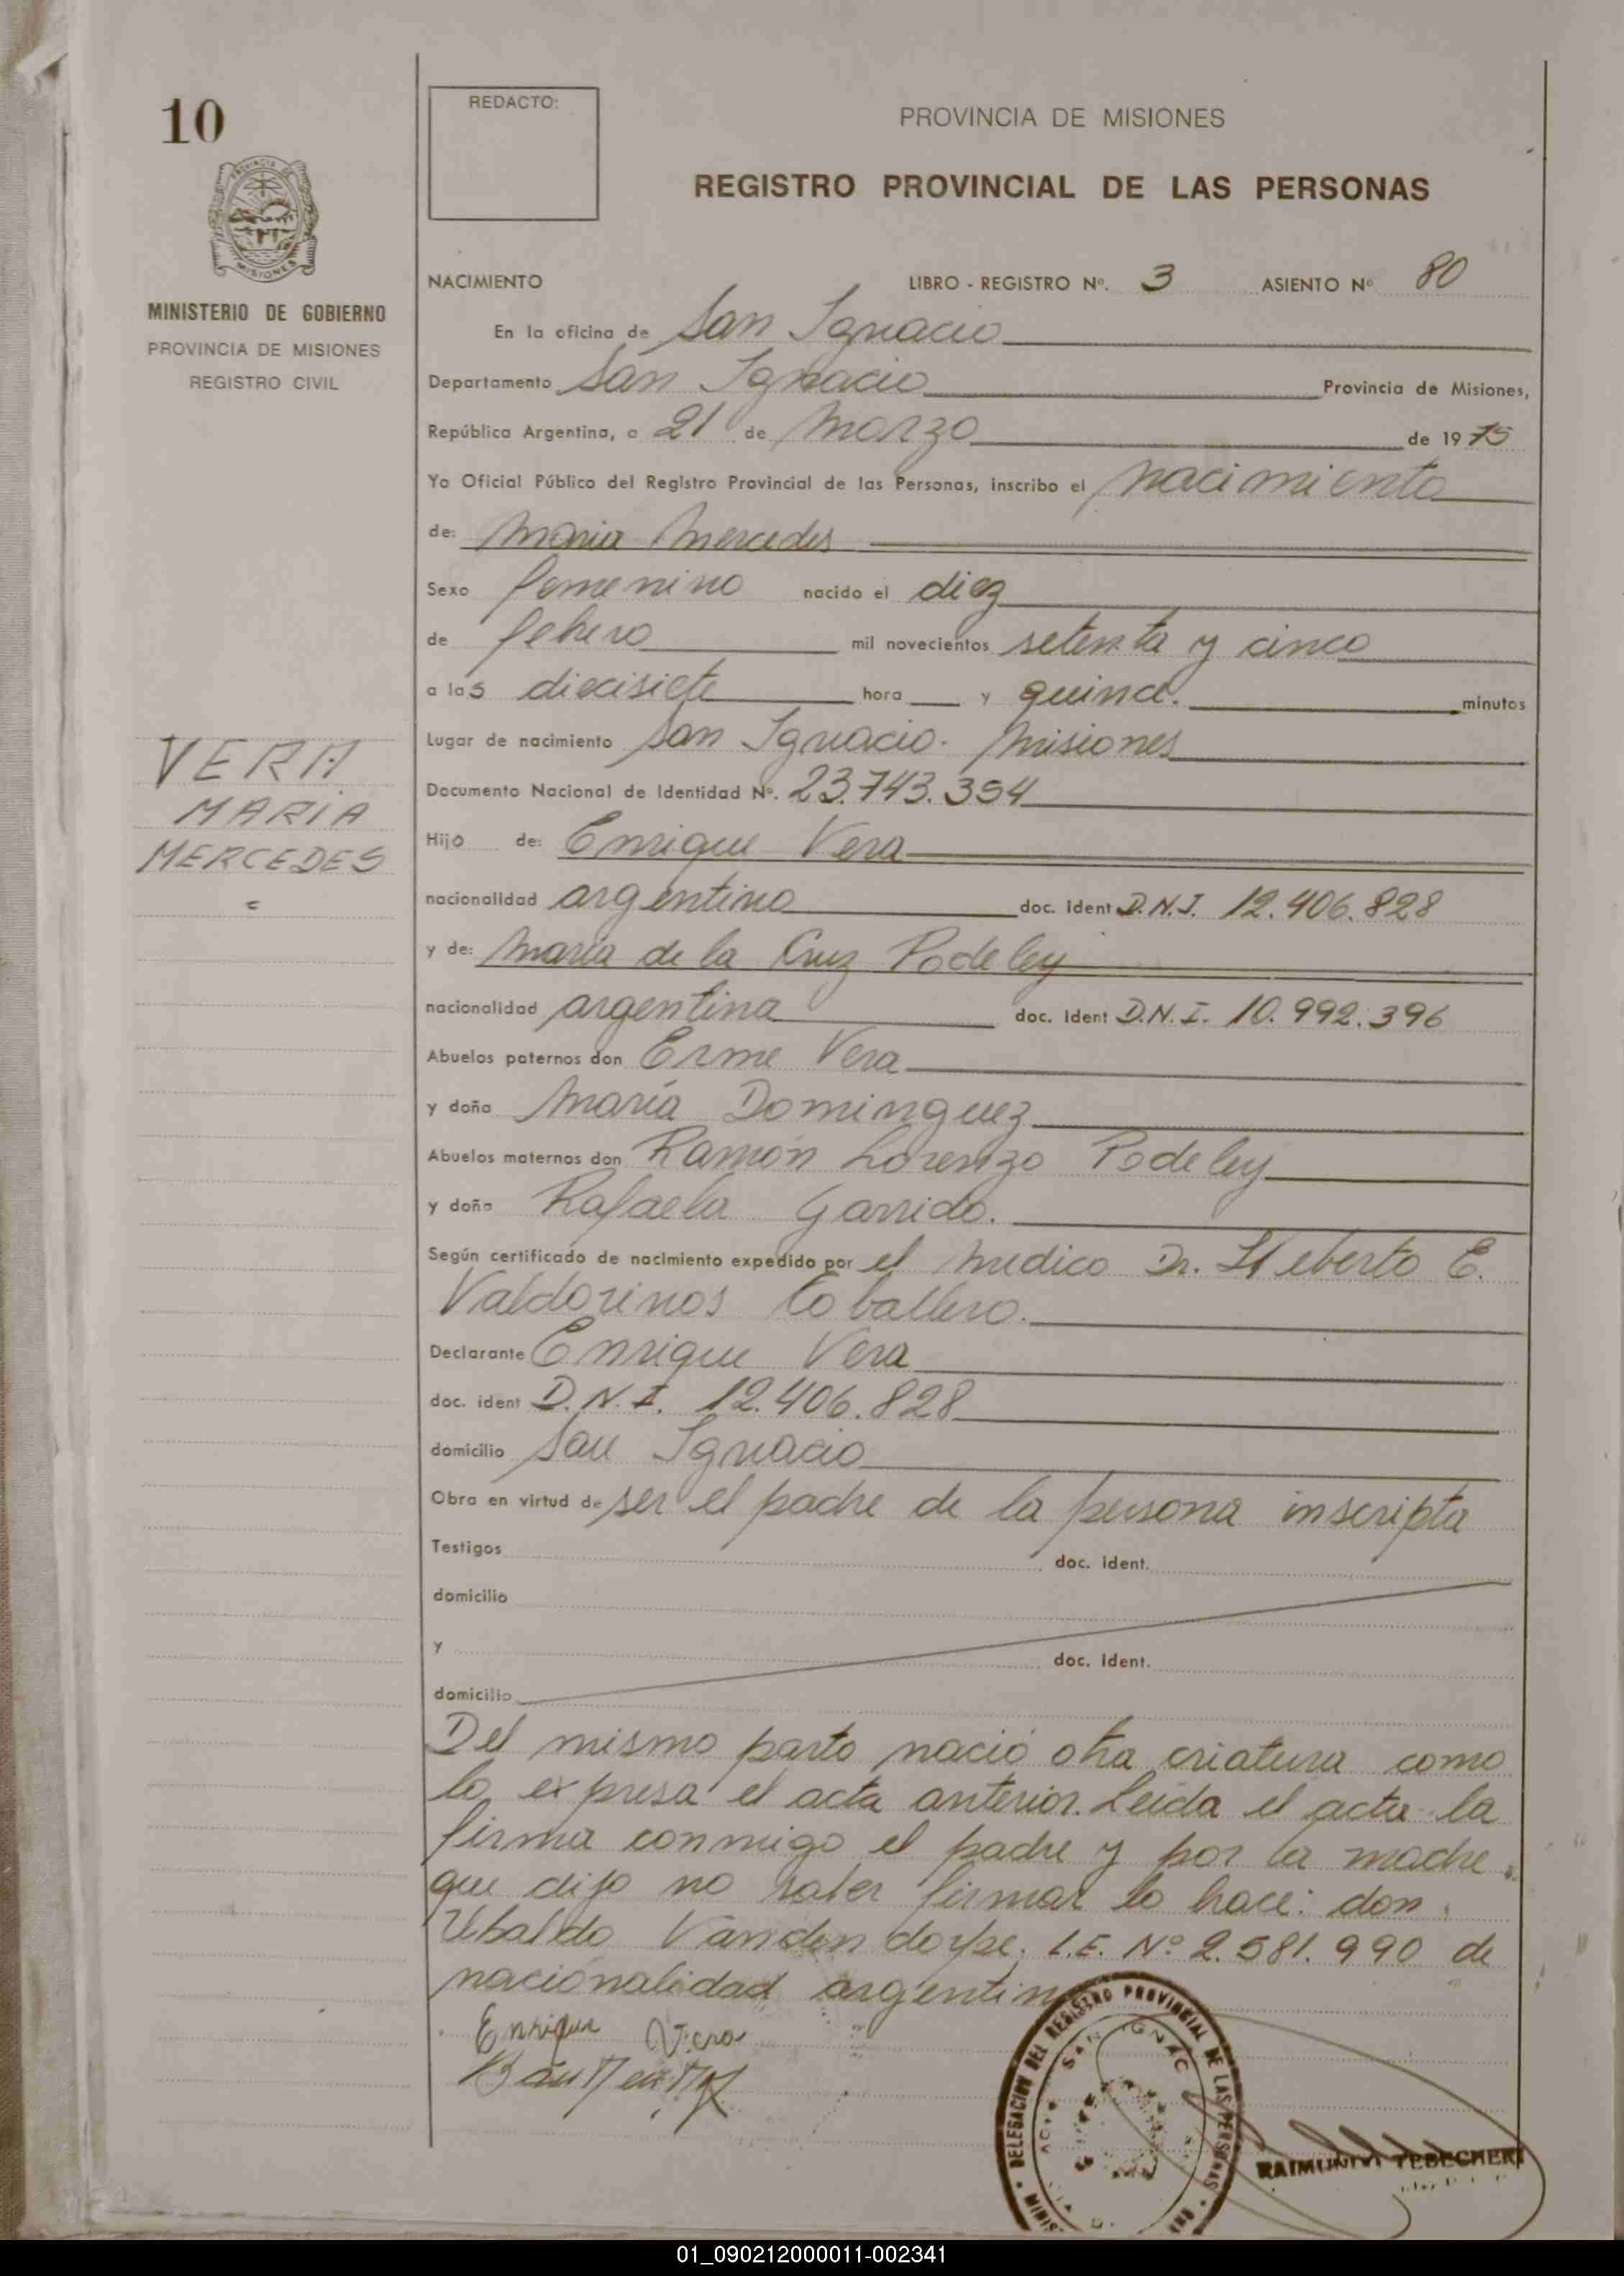 10
REDACTO:
PROVINCIA DE MISIONES
REGISTRO PROVINCIAL DE LAS PERSONAS
PROVINCIA DE
MISIONES
MINISTERIO DE GOBIERNO
PROVINCIA DE MISIONES
REGISTRO CIVIL
NACIMIENTO LIBRO - REGISTRO Nº. 3 ASIENTO Nº 80
En la oficina de San Ignacio
Departamento San Ignacio Provincia de Misiones,
República Argentina, a 21 de Marzo de 1975
Yo Oficial Público del Registro Provincial de las Personas, inscribo el nacimiento
de: Maria Mercedes
Sexo femenino nacido el diez
de febrero mil novecientos setenta y cinco
a las diecisiete hora y quince. minutos
Lugar de nacimiento San Ignacio. Misiones
Documento Nacional de Identidad Nº. 23.743.354
VERA
MARIA
MERCEDES
Hijo de: Enrique Vera
nacionalidad argentina doc. ident D.N.I. 12.406.828
y de: María de la Cruz Podeley
nacionalidad argentina doc. ident D.N.I. 10.992.396
Abuelos paternos don Erme Vera
y doña María Dominguez
Abuelos maternos don Ramón Lorenzo Podeley
y doña Rafaela Garrido.
Según certificado de nacimiento expedido por el Medico Dr. Heberto E.
Valdovinos Caballero.
Declarante Enrique Vera
doc. ident D.N.I. 12.406.828
domicilio San Ignacio
Obra en virtud de ser el padre de la persona inscripta
Testigos doc. ident.
domicilio
y doc. ident.
domicilio
Del mismo parto nació otra criatura como
lo expresa el acta anterior. Leída el acta la
firma conmigo el padre y por la madre
que dijo no saber firmar lo hace: don
Ubaldo Vanden dorpe. L.E. Nº 2.581.990 de
nacionalidad argentina
Enrique Vera
DELEGACION DEL REGISTRO PROVINCIAL DE LAS PERSONAS
SAN IGNACIO
RAIMUNDO TEBECHERI
01_090212000011-002341